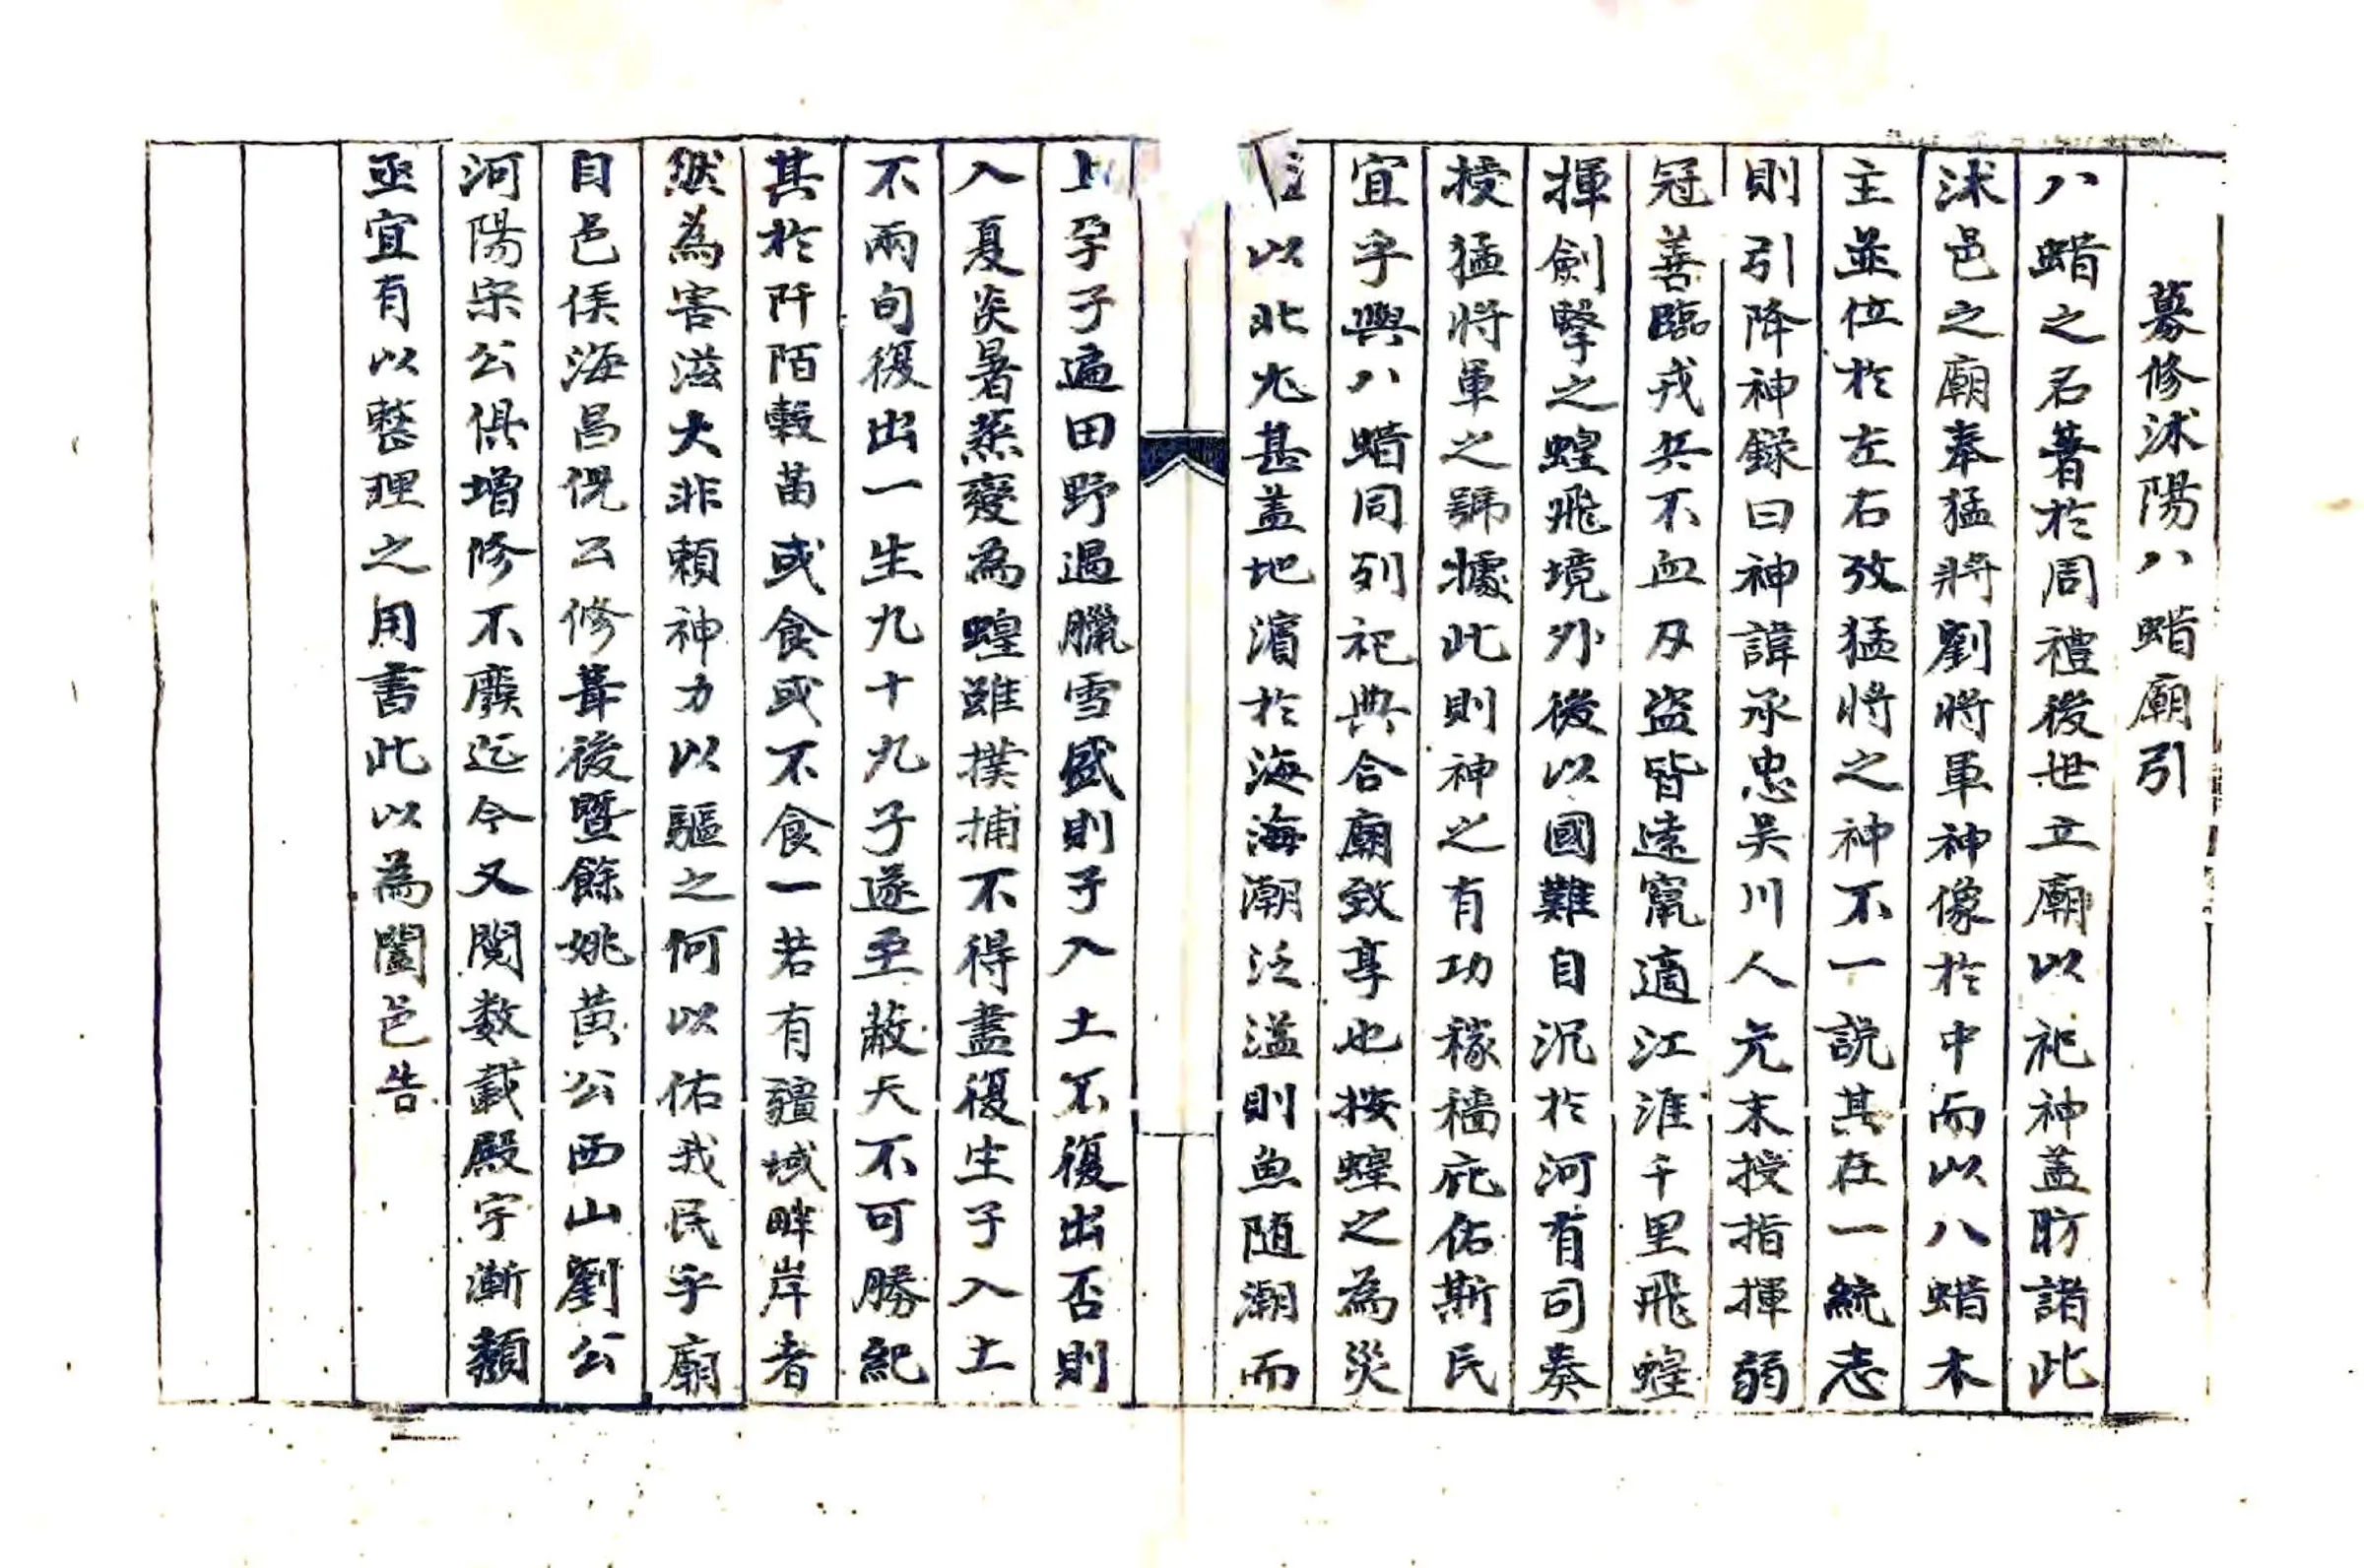 募修沭陽八蜡廟引
八蜡之名著於周禮後世立廟以祀神盖昉諸此
沭邑之廟奉猛將劉將軍神像於中而以八蜡木
主並位於左右攷猛將之神不一說其在一統志
則引降神錄曰神諱承忠吳川人元末授指揮弱
冠善臨戎兵不血刃盗皆遠竄適江淮千里飛蝗
揮劍擊之蝗飛境外後以國難自沉於河有司奏
授猛將軍之號據此則神之有功稼穡庇佑斯民
宜乎與八蜡同列祀典合廟致享也按蝗之為災
以北尤甚盖地濱於海海潮泛溢則魚随潮而
上孕子遍田野遇臘雪盛則子入土不復出否則
入夏炎暑蒸變為蝗雖撲捕不得盡復生子入土
不兩旬復出一生九十九子遂至蔽天不可勝紀
其於阡陌穀苗或食或不食一若有疆域畔岸者
然為害滋大非賴神力以驅之何以佑我民乎廟
自邑侯海昌倪公修葺後暨餘姚黄公西山劉公
河陽宋公俱增修不廢迄今又閱数載殿宇漸頽
亟宜有以整理之用書此以為闔邑告